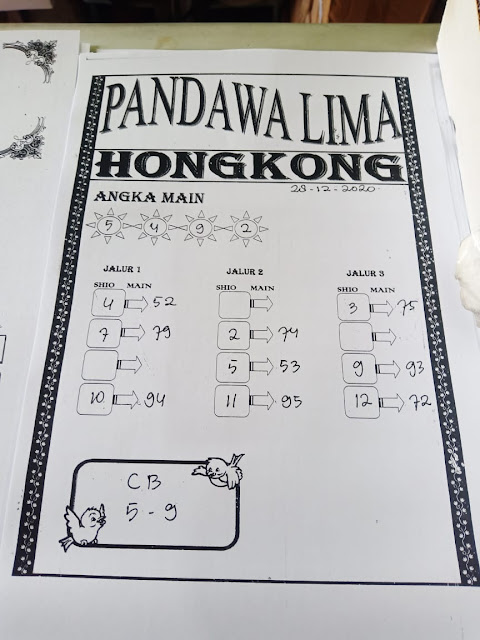 PANDAWA LIMA
HONGKONG
28-12-2020
ANGKA MAIN
5 4 9 2
JALUR 1 JALUR 2 JALUR 3
SHIO MAIN SHIO MAIN SHIO MAIN
4 52 3 75
7 79 2 74
5 53 9 93
10 94 11 95 12 72
CB
5 - 9